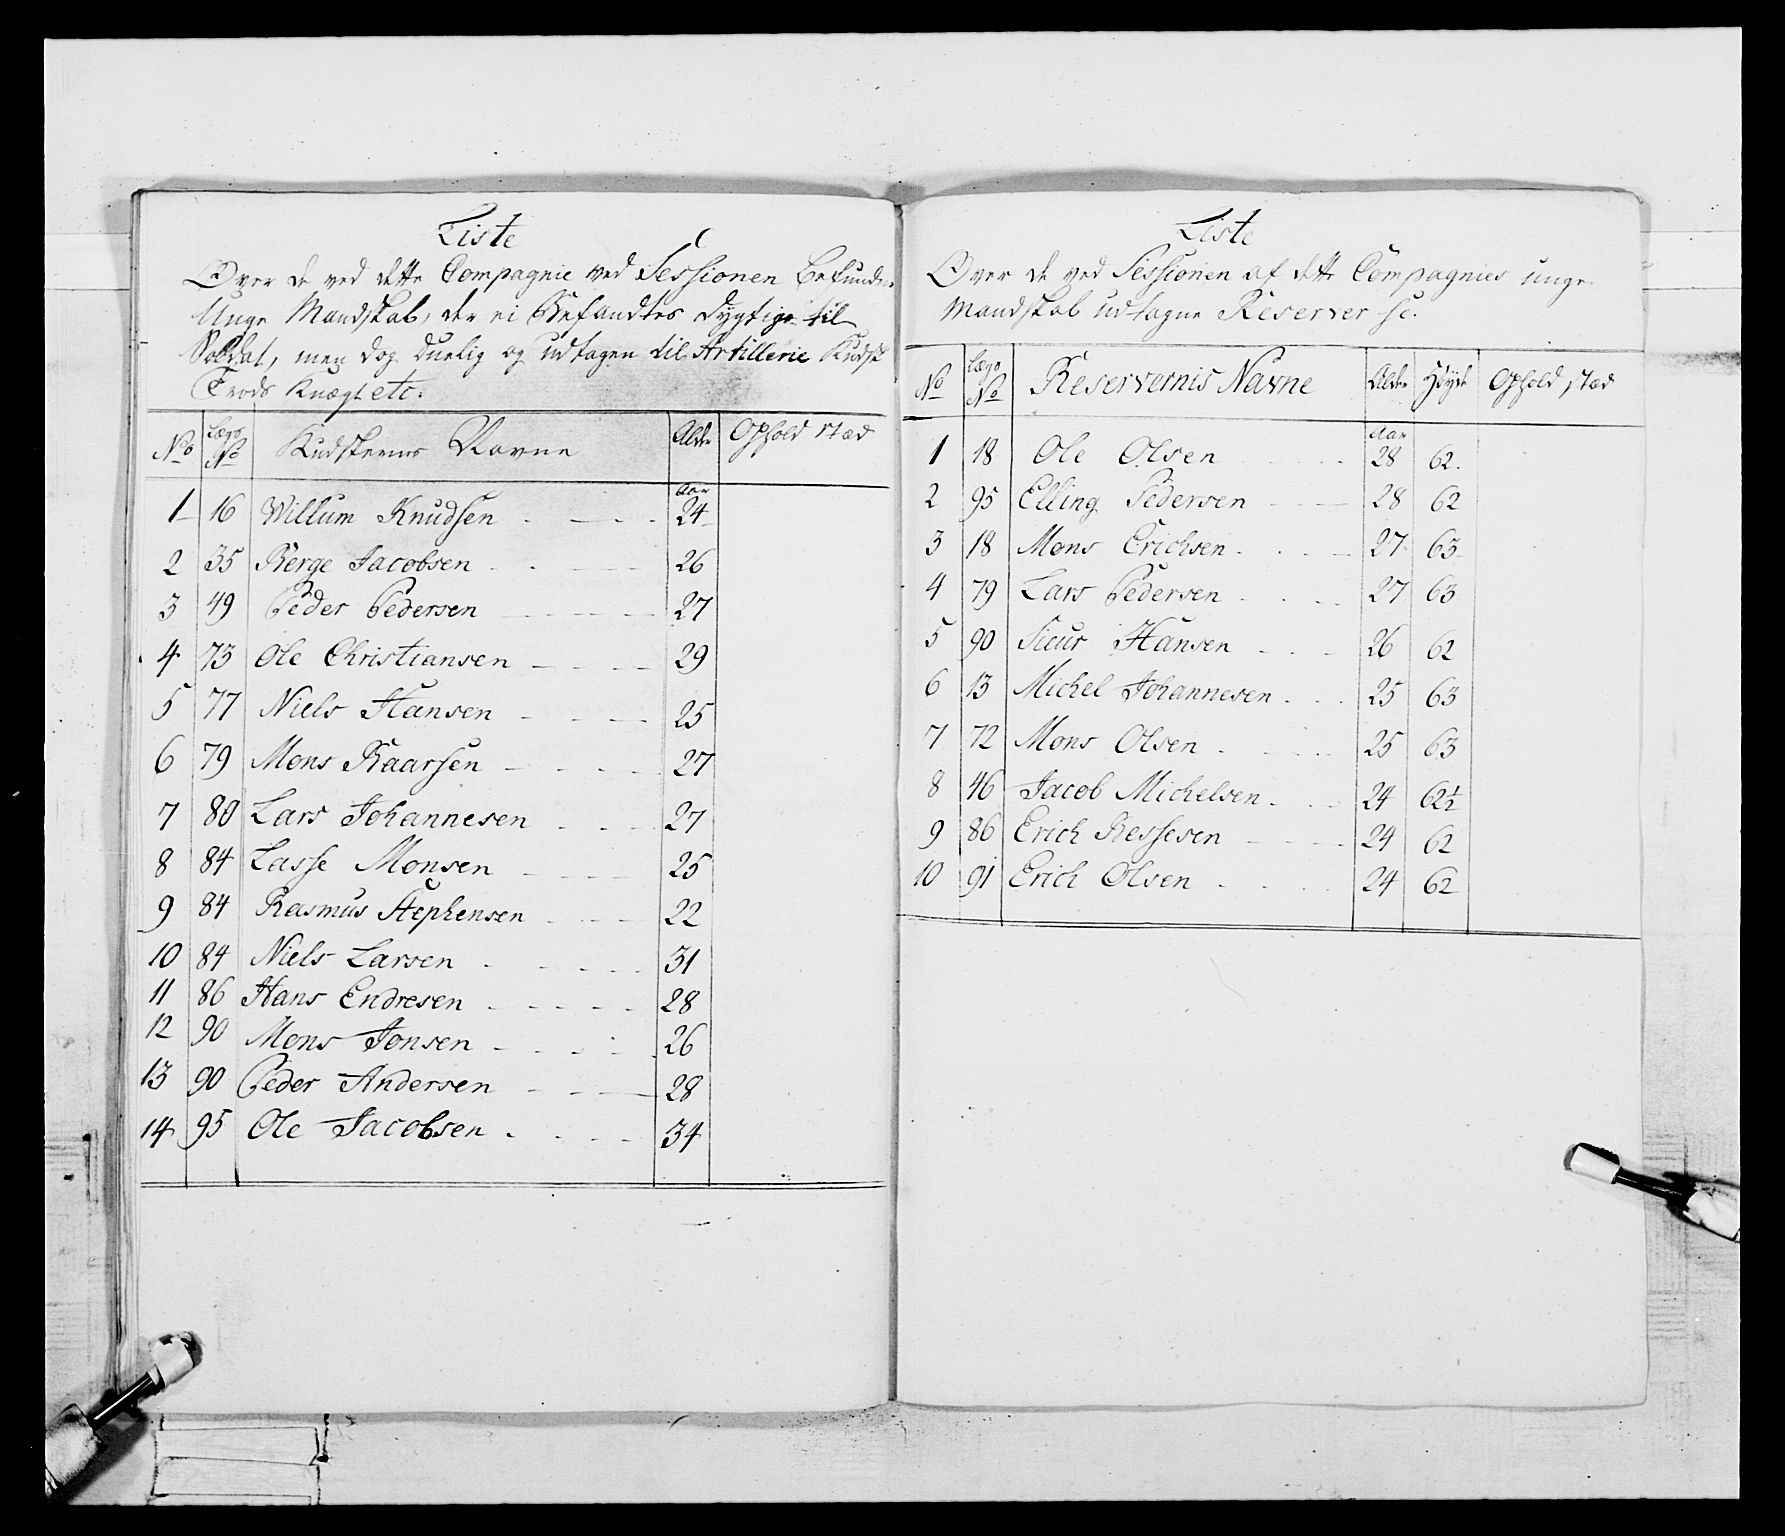 Liste
Over de ved dette Compagnie ved Sessionen befundne
Unge Mandskab, der ei Befandtes dygtige til
Soldat, men dog duelig og udtagen til Artillerie Kudsk
Trods Knægt etc.
No Lægs No Kudskernes Navne Alder Ophold stæd
Aar
1 16 Willum Knudsen 24
2 35 Berge Jacobsen 26
3 49 Peder Pedersen 27
4 73 Ole Christiansen 29
5 77 Niels Hansen 25
6 79 Mons Kaarsen 27
7 80 Lars Johannesen 27
8 84 Lasse Monsen 25
9 84 Rasmus Stephensen 22
10 84 Niels Larsen 31
11 86 Hans Endresen 28
12 90 Mons Jonsen 26
13 90 Peder Andersen 28
14 95 Ole Jacobsen 34
Liste
Over de ved Sessionen af dette Compagnies unge
Mandskab udtagne Reserver
No Lægs No Reservernis Navne Alder Høyde Ophold stæd
Aar
1 18 Ole Olsen 28 62
2 95 Elling Pedersen 28 62
3 18 Mons Erichsen 27 63
4 79 Lars Pedersen 27 63
5 90 Siur Hansen 26 62
6 13 Michel Johannesen 25 63
7 72 Mons Olsen 25 63
8 46 Jacob Michelsen 24 62½
9 86 Erich Bessesen 24 62
10 91 Erich Olsen 24 62